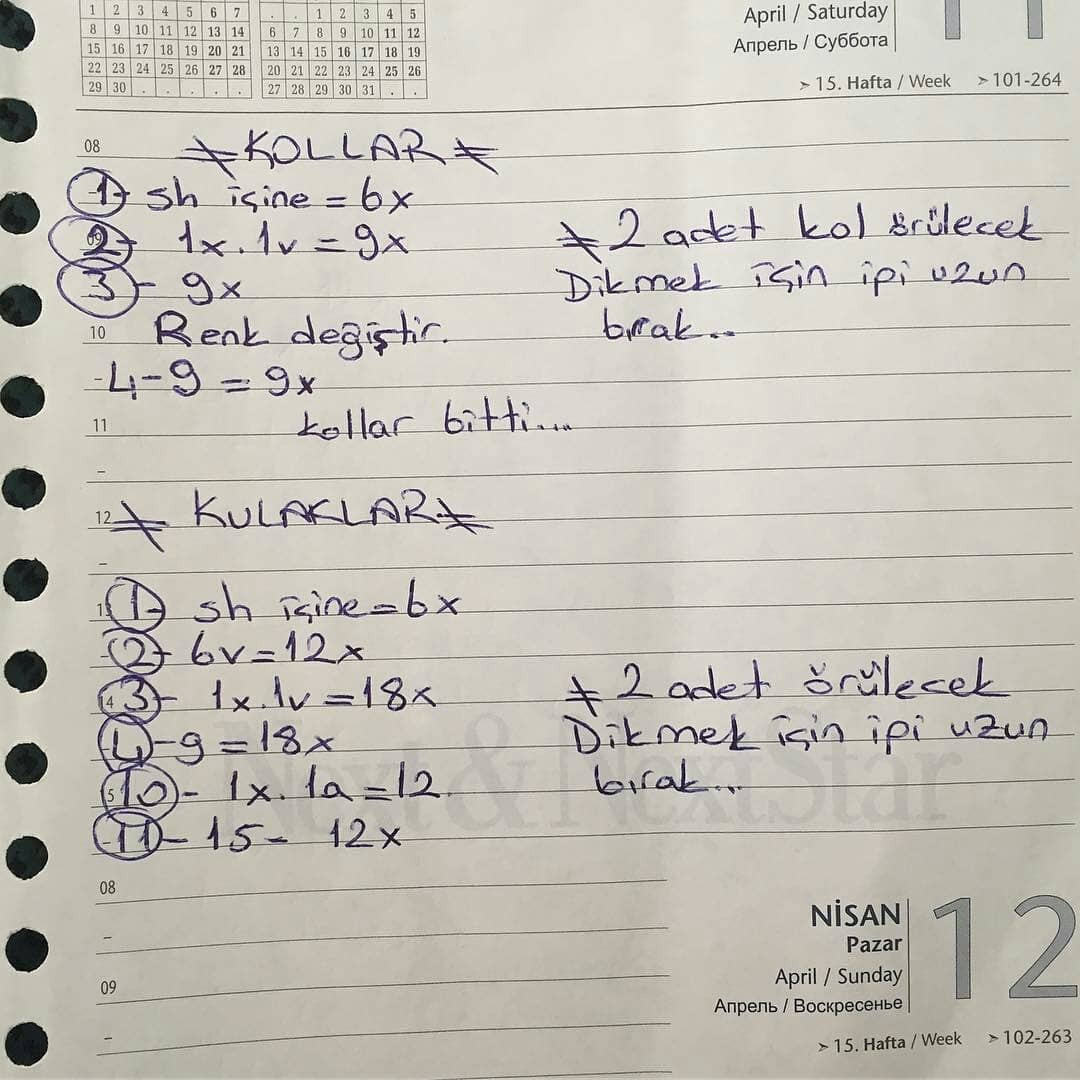 1 2 3 4 5 6 7
8 9 10 11 12 13 14
15 16 17 18 19 20 21
22 23 24 25 26 27 28
29 30 . . . . .
. . 1 2 3 4 5
6 7 8 9 10 11 12
13 14 15 16 17 18 19
20 21 22 23 24 25 26
27 28 29 30 31 . .
April / Saturday
Апрель / Суббота
11
➢ 15. Hafta / Week ➢ 101-264
08 * KOLLAR *
1- sh içine = 6x
09 2- 1x.1v = 9x
* 2 adet kol örülecek
3- 9x
Dikmek için ipi uzun
10 Renk değiştir.
bırak..
4-9 = 9x
11 kollar bitti...
12 * KULAKLAR *
1- sh içine = 6x
2- 6v = 12x
3- 1x.1v = 18x
* 2 adet örülecek
4-9 = 18x
Dikmek için ipi uzun
10- 1x.1a = 12
bırak...
11-15- 12x
Next & NextStar
08
09
NİSAN
Pazar
April / Sunday
Апрель / Воскресенье
12
➢ 15. Hafta / Week ➢ 102-263